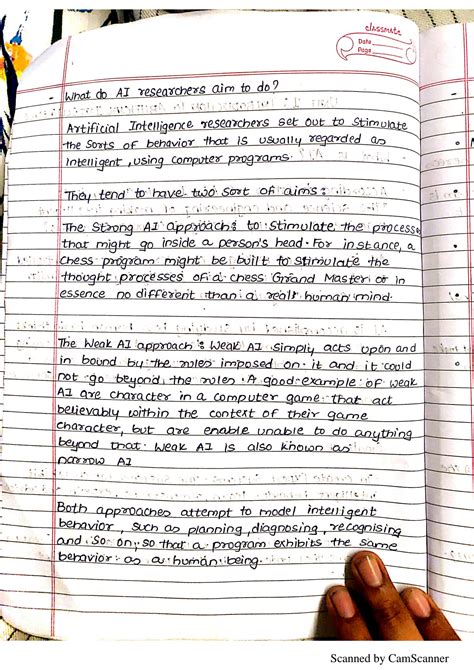 classmate
Date
Page
- What do AI researchers aim to do?
Artificial Intelligence researchers set out to Stimulate
the sorts of behavior that is usually regarded as
intelligent, using computer programs.
They tend to have two sort of aims:
The Strong AI approach: to stimulate the process
that might go inside a person's head. For instance, a
chess program might be built to stimulate the
thought processes of a chess Grand Master or in
essence no different than a realt human mind.
The Weak AI approach: Weak AI simply acts upon and
in bound by the rules imposed on it and it could
not go beyond the rules. A good example of weak
AI are character in a computer game that act
believably within the context of their game
character, but are enable unable to do anything
beyond that. Weak AI is also known as
narrow AI
Both approaches attempt to model intelligent
behavior, such as planning, diagnosing, recognising
and so on, so that a program exhibits the same
behavior as a human being.
Scanned by CamScanner